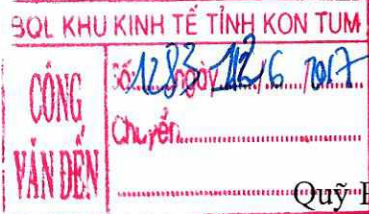 BQL KHU KINH TẾ TỈNH KON TUM
CÔNG VĂN ĐẾN
Số: 1283 ngày 12/6 2017
Chuyển
Quỹ